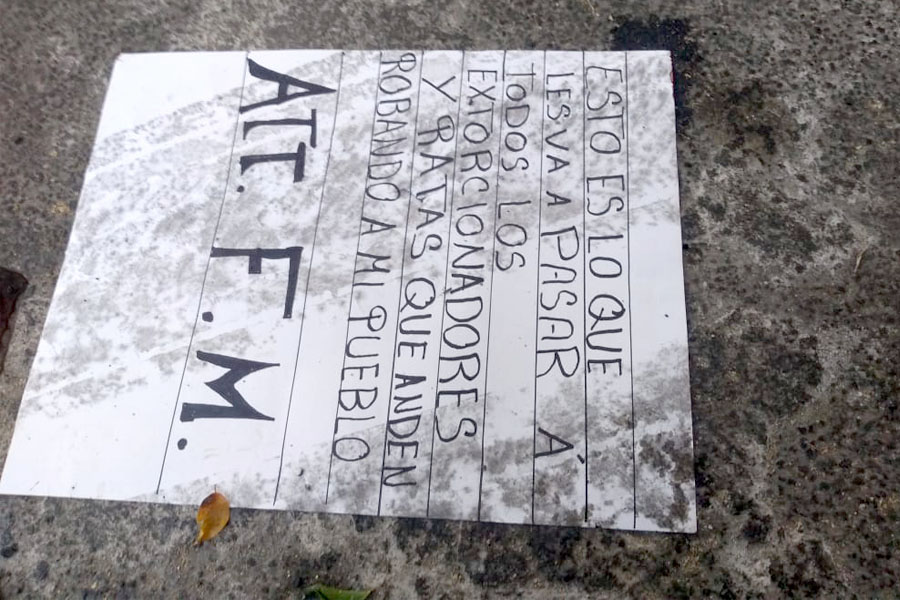 ESTO ES LO QUE
LES VA A PASAR Á
TODOS LOS
EXTORCIONADORES
Y RATAS QUE ANDEN
ROBANDO A MI PUEBLO
ATT. F.M.